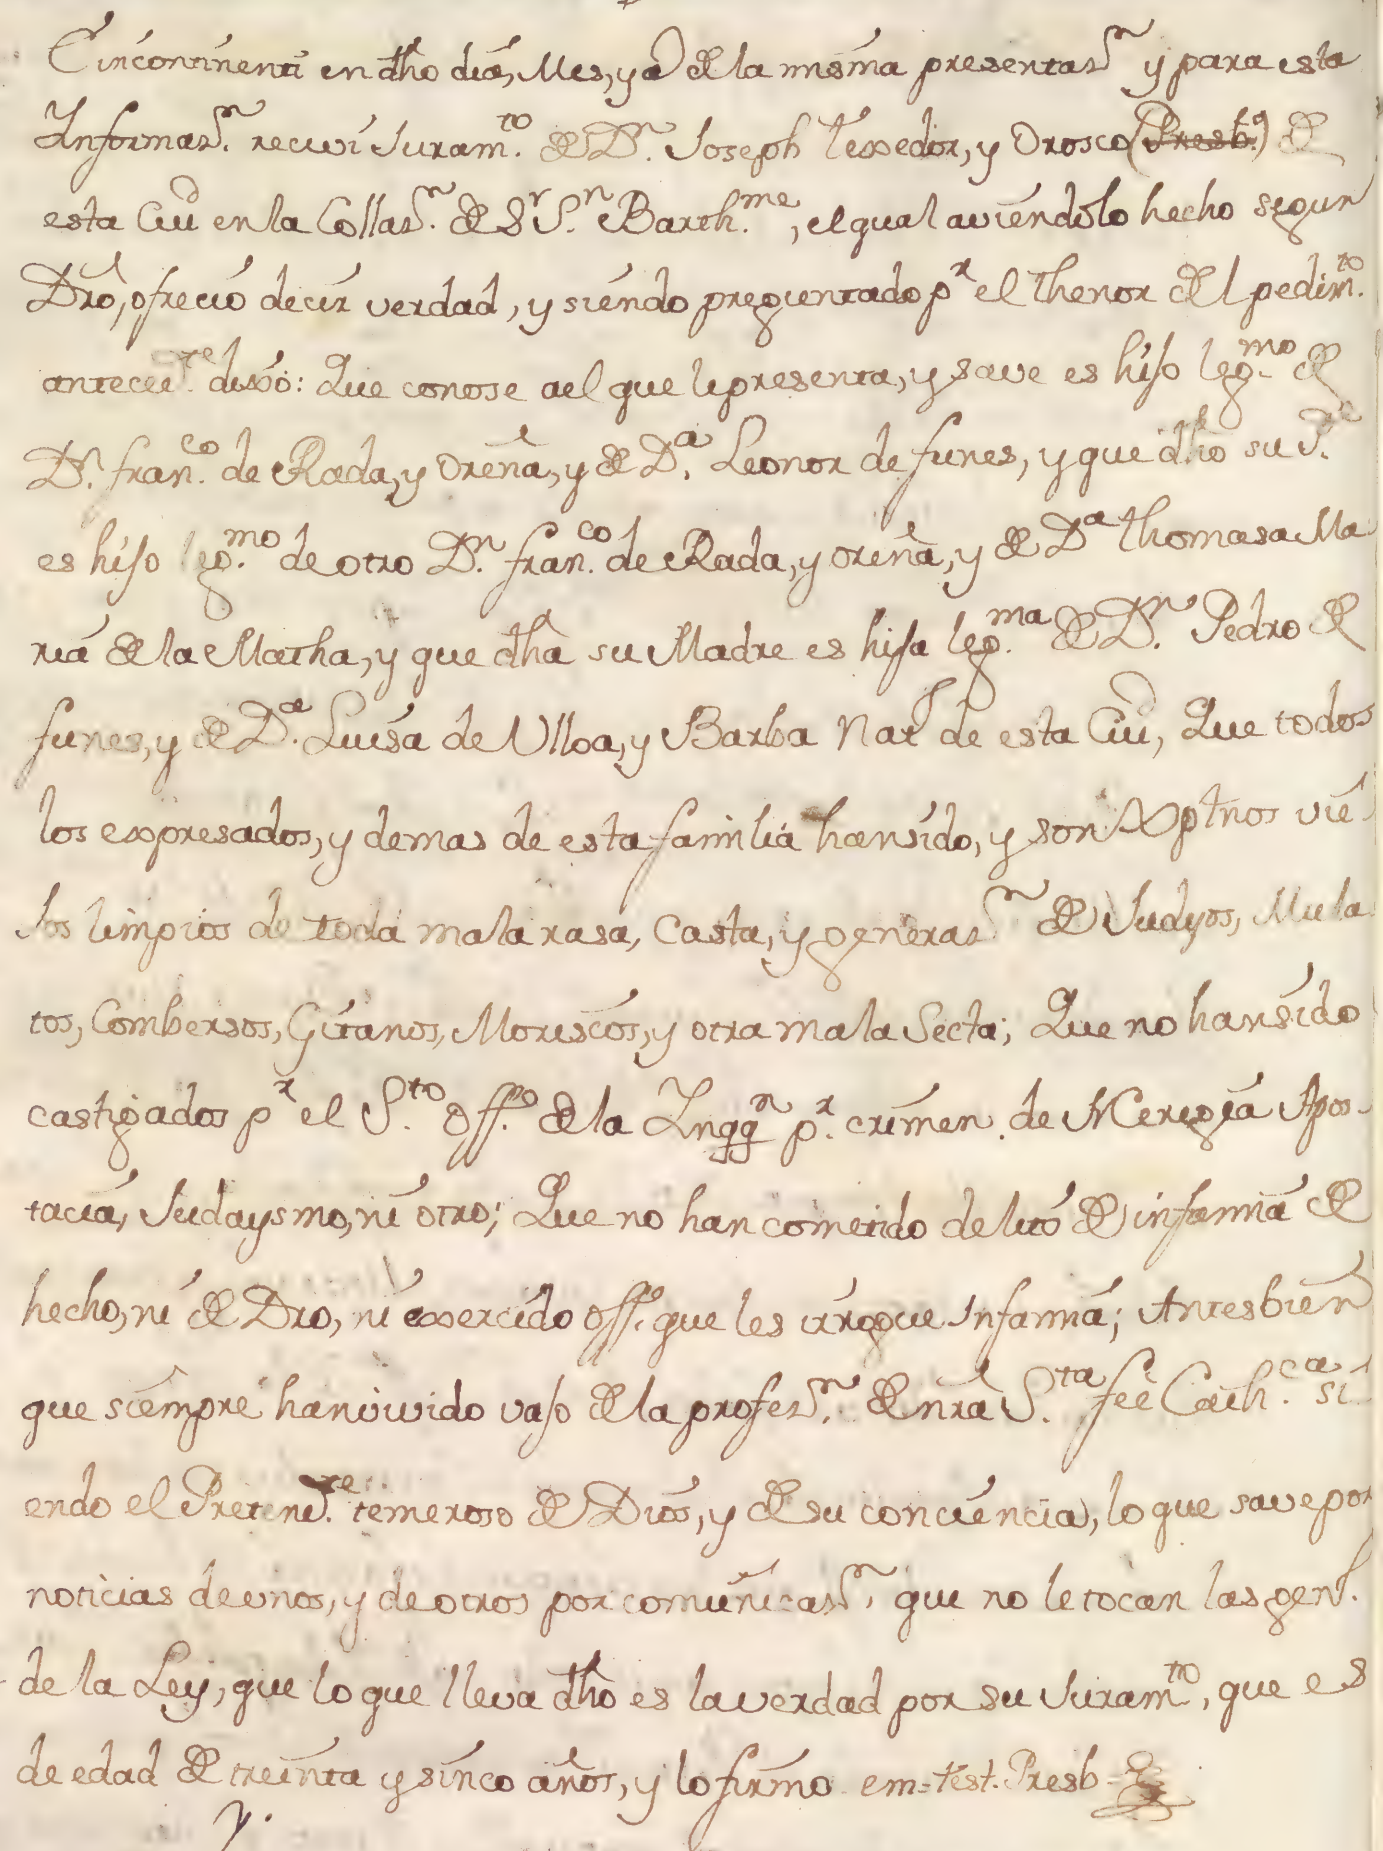 E incontinenti en dho dia, Mes, y a de la misma presentasn y para esta
Informasn. recivi Juramto. de Dn. Joseph texedor, y Orosco (Presbo.) de
esta Ciud en la Collasn. de Sr Sn. Barthme., el qual aviendolo hecho segun
Dro, ofrecio decir verdad, y siendo preguntado pr el thenor de el pedimto.
antecedte. dixo: Que conose ael que lepresenta, y save es hijo legmo. de
Dn. franco. de Rada, y Oreña, y de Da. Leonor de funes, y que dho su Pe.
es hijo legmo. de otro Dn. franco. de Rada, y oreña, y de Da thomasa Ma
ria de la Matha, y que dha su Madre es hija legma. de Dn. Pedro de
funes, y de Da. Luisa de Ulloa, y Barba Natl de esta Ciud, Que todos
los expresados, y demas de esta familia hansido, y son Xptnos vie
jos limpios de toda mala rasa, Casta, y generasn de Judyos, Mula
tos, Combersos, Gitanos, Moriscos, y otra mala Secta; Que no hansido
castigados pr el Sto. Offo. de la Inqqn pr. crimen de Heregia Apos-
tacia, Judaysmo, ni otro; Que no han cometido delito de infamia de
hecho, ni de Dro, ni exercido offo. que les irrogue Infamia; Antesbien
que siempre hanvivido vajo de la profesn. de nra Sta. feé Cathca. si
endo el Pretendte. temeroso de Dios, y de su conciencia, lo que save por
noticias de unos, y de otros por comunicasn. que no le tocan las genl.
de la Ley, que lo que lleva dho es la verdad por su Juramto, que es
de edad de treinta y sinco años, y lo firmo em=test. Presb-